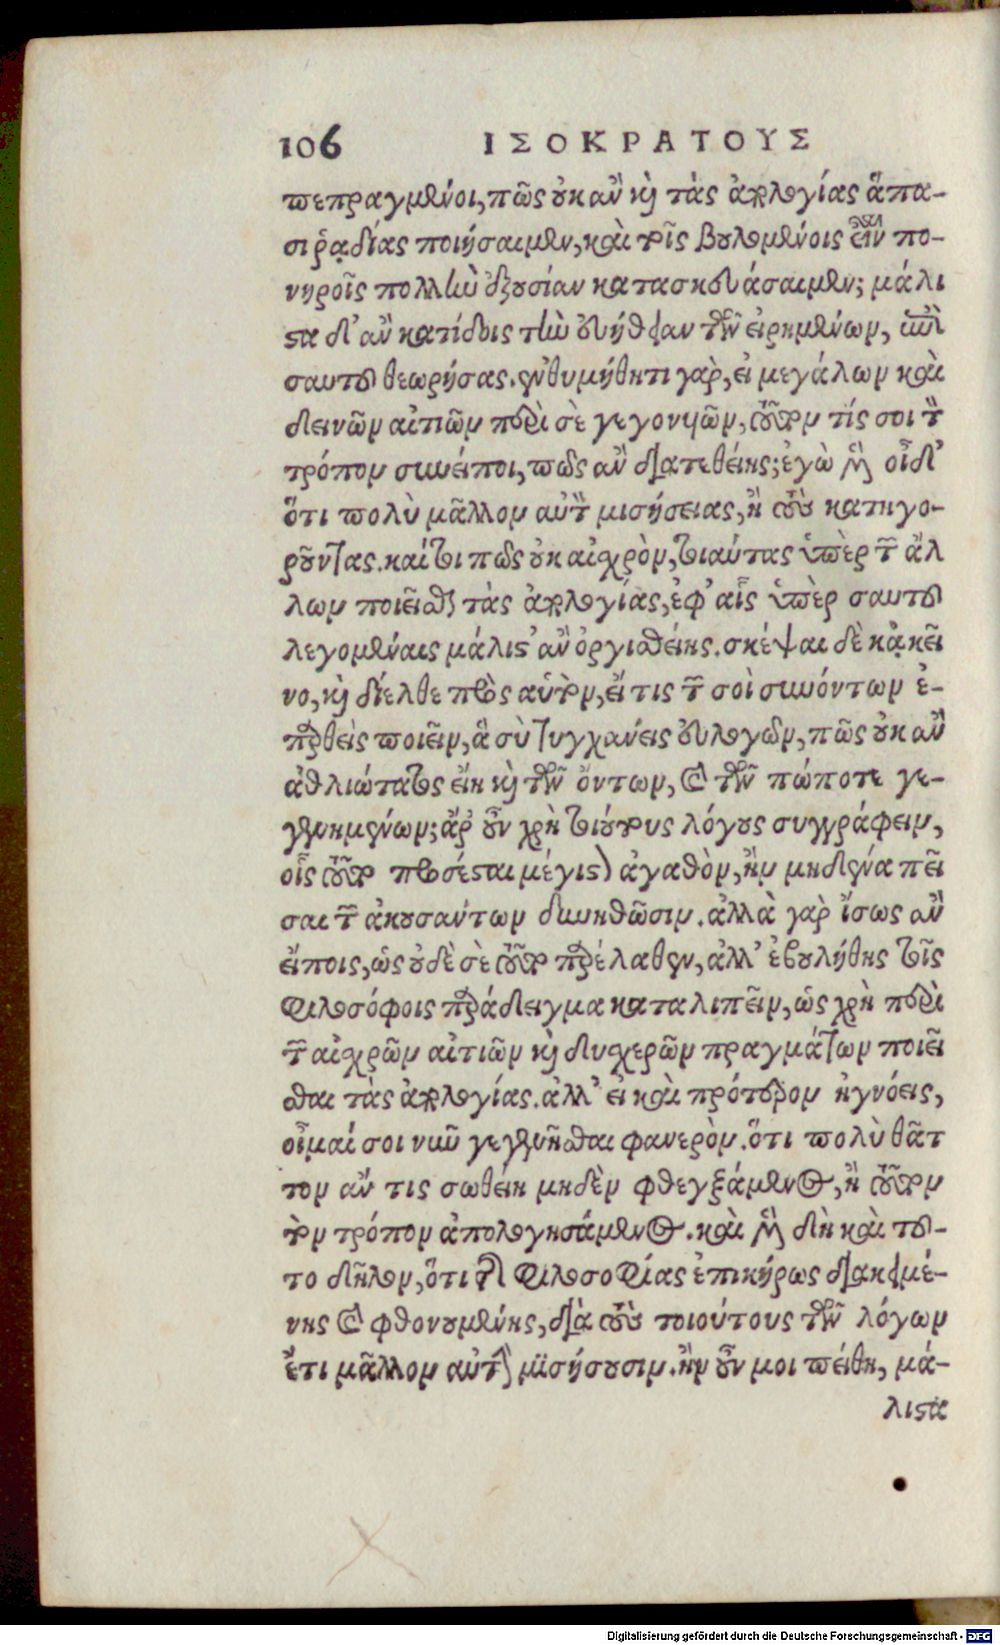 106 ΙΣΟΚΡΑΤΟΥΣ
πεπραγμένοι, πῶς οὐκ ἂν καὶ τὰς ἀπολογίας ἅπα-
σι ῥᾳδίας ποιήσαιμεν, καὶ τοῖς βουλομένοις εἶναι πο-
νηροῖς πολλὴν ἐξουσίαν κατασκευάσαιμεν; μάλι
στα δ' ἂν κατίδοις τὴν εὐήθειαν τῶν εἰρημένων, ἐπὶ
σαυτοῦ θεωρήσας. ἐνθυμήθητι γὰρ, εἰ μεγάλων καὶ
δεινῶν αἰτιῶν περὶ σὲ γεγονυιῶν, τοῦτον τίς σοι τὸν
τρόπον συνείποι, πῶς ἂν διατεθείης; ἐγὼ μὲν οἶδ'
ὅτι πολὺ μᾶλλον αὐτὸν μισήσειας, ἢ τοὺς κατηγο-
ροῦντας. καίτοι πῶς οὐκ αἰσχρὸν, τοιαύτας ὑπὲρ τῶν ἄλ
λων ποιεῖσθαι τὰς ἀπολογίας, ἐφ' αἷς ὑπὲρ σαυτοῦ
λεγομέναις μάλιστ' ἂν ὀργισθείης. σκέψαι δὲ κᾀκεῖ
νο, καὶ δίελθε πρὸς αὑτὸν, εἴ τις τῶν σοὶ συνόντων ἐ-
παρθεὶς ποιεῖν, ἃ σὺ τυγχάνεις εὐλογῶν, πῶς οὐκ ἂν
ἀθλιώτατος εἴη καὶ τῶν ὄντων, καὶ τῶν πώποτε γε-
γενημένων; ἆρ' οὖν χρὴ τοιούτους λόγους συγγράφειν,
οἷς τοῦτο προσέσται μέγιστον ἀγαθὸν, ἢν μηδένα πεῖ
σαι τῶν ἀκουσάντων δυνηθῶσιν. ἀλλὰ γὰρ ἴσως ἂν
εἴποις, ὡς οὐδὲ σὲ τοῦτο παρέλαθεν, ἀλλ' ἐβουλήθης τοῖς
φιλοσόφοις παράδειγμα καταλιπεῖν, ὡς χρὴ περὶ
τῶν αἰσχρῶν αἰτιῶν καὶ δυσχερῶν πραγμάτων ποιεῖ
σθαι τὰς ἀπολογίας. ἀλλ' εἰ καὶ πρότερον ἠγνόεις,
οἶμαί σοι νῦν γεγενῆσθαι φανερὸν. ὅτι πολὺ θᾶτ
τον ἄν τις σωθείη μηδὲν φθεγξάμενος, ἢ τοῦτον
τὸν τρόπον ἀπολογησάμενος. καὶ μὲν δὴ καὶ τοῦ-
το δῆλον, ὅτι τῆς φιλοσοφίας ἐπικήρως διακειμέ-
νης καὶ φθονουμένης, διὰ τοὺς τοιούτους τῶν λόγων
ἔτι μᾶλλον αὐτὴν μισήσουσιν. ἢν οὖν μοι πείθῃ, μά-
λιστα
Digitalisierung gefördert durch die Deutsche Forschungsgemeinschaft - DFG